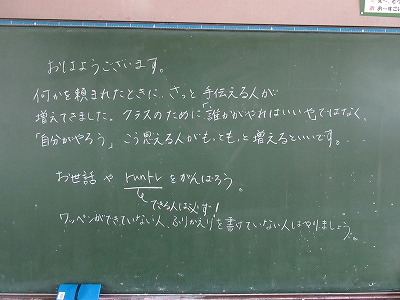 おはようございます。
何かを頼まれたときに、さっと手伝える人が
増えてきました。クラスのために「誰かがやればいいや」ではなく、
「自分がやろう」こう思える人がもっともっと増えるといいです。
お世話や runtr をがんばろう。
できる人は必ず!
ワッペンができていない人、ふりかえりを書けていない人はやりましょう。